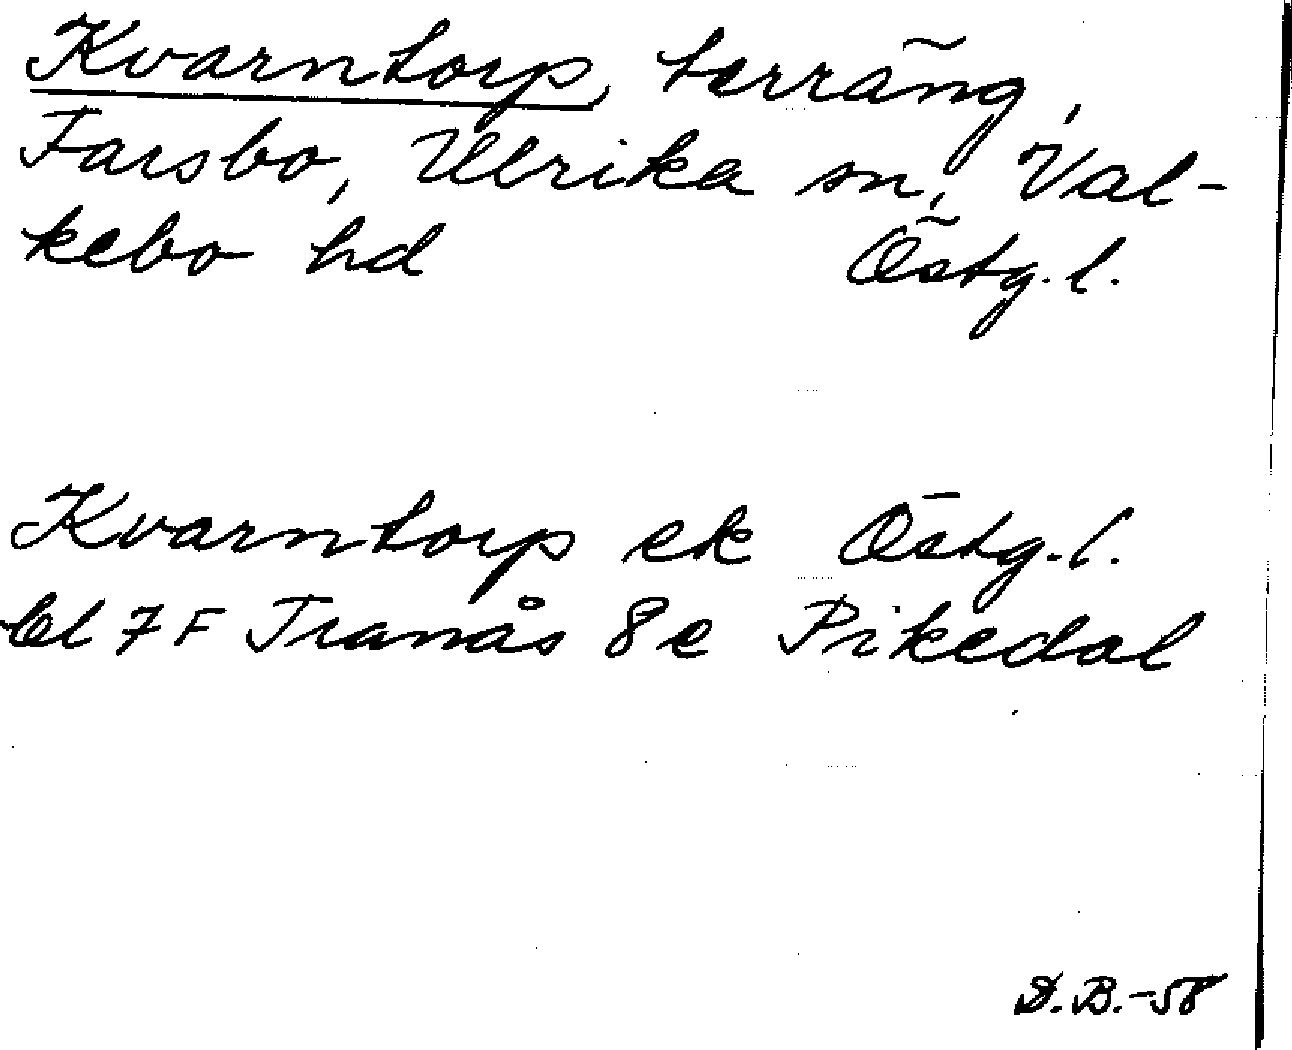 Kvarntorp, terräng,
Farsbo, Ulrika sn, Val-
kebo hd Östg. l.
Kvarntorp ek Östg. l.
bl 7 F Tranås 8 e Pikedal
D.B.-58